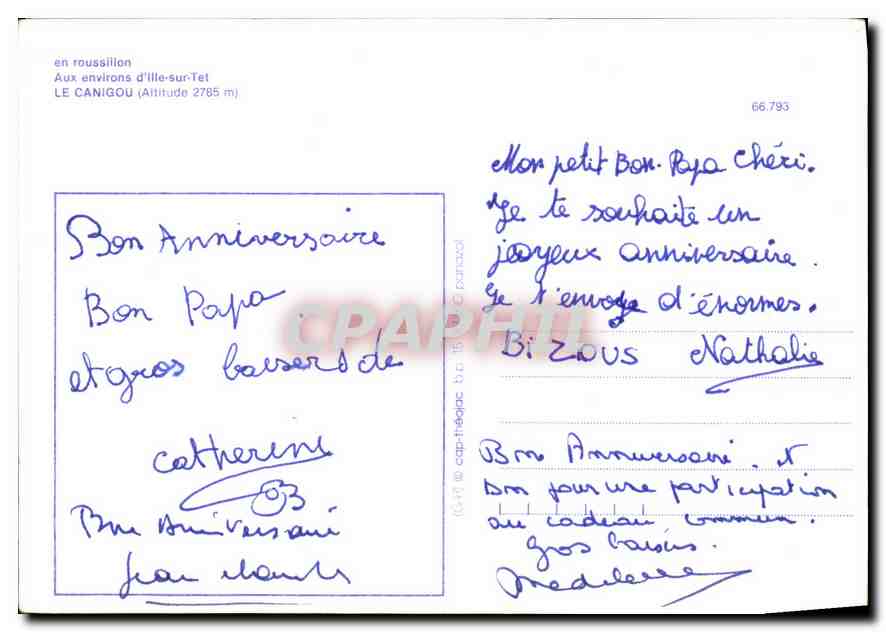 en roussillon
Aux environs d'Ille-sur-Tet
LE CANIGOU (Altitude 2785 m)
66.793
Bon Anniversaire
Bon Papa
et gros baisers de
Catherine
Bon Anniversaire
Jean Claude
cap-théojac b.p. 15 panazol
CPAPHIL
Mon petit Bon-Papa Chéri.
Je te souhaite un
joyeux anniversaire.
Je t'envoye d'énormes.
Bi ZOUS Nathalie
Bon Anniversaire. et
Bon pour une participation
au cadeau commun.
Gros baisers.
Madeleine